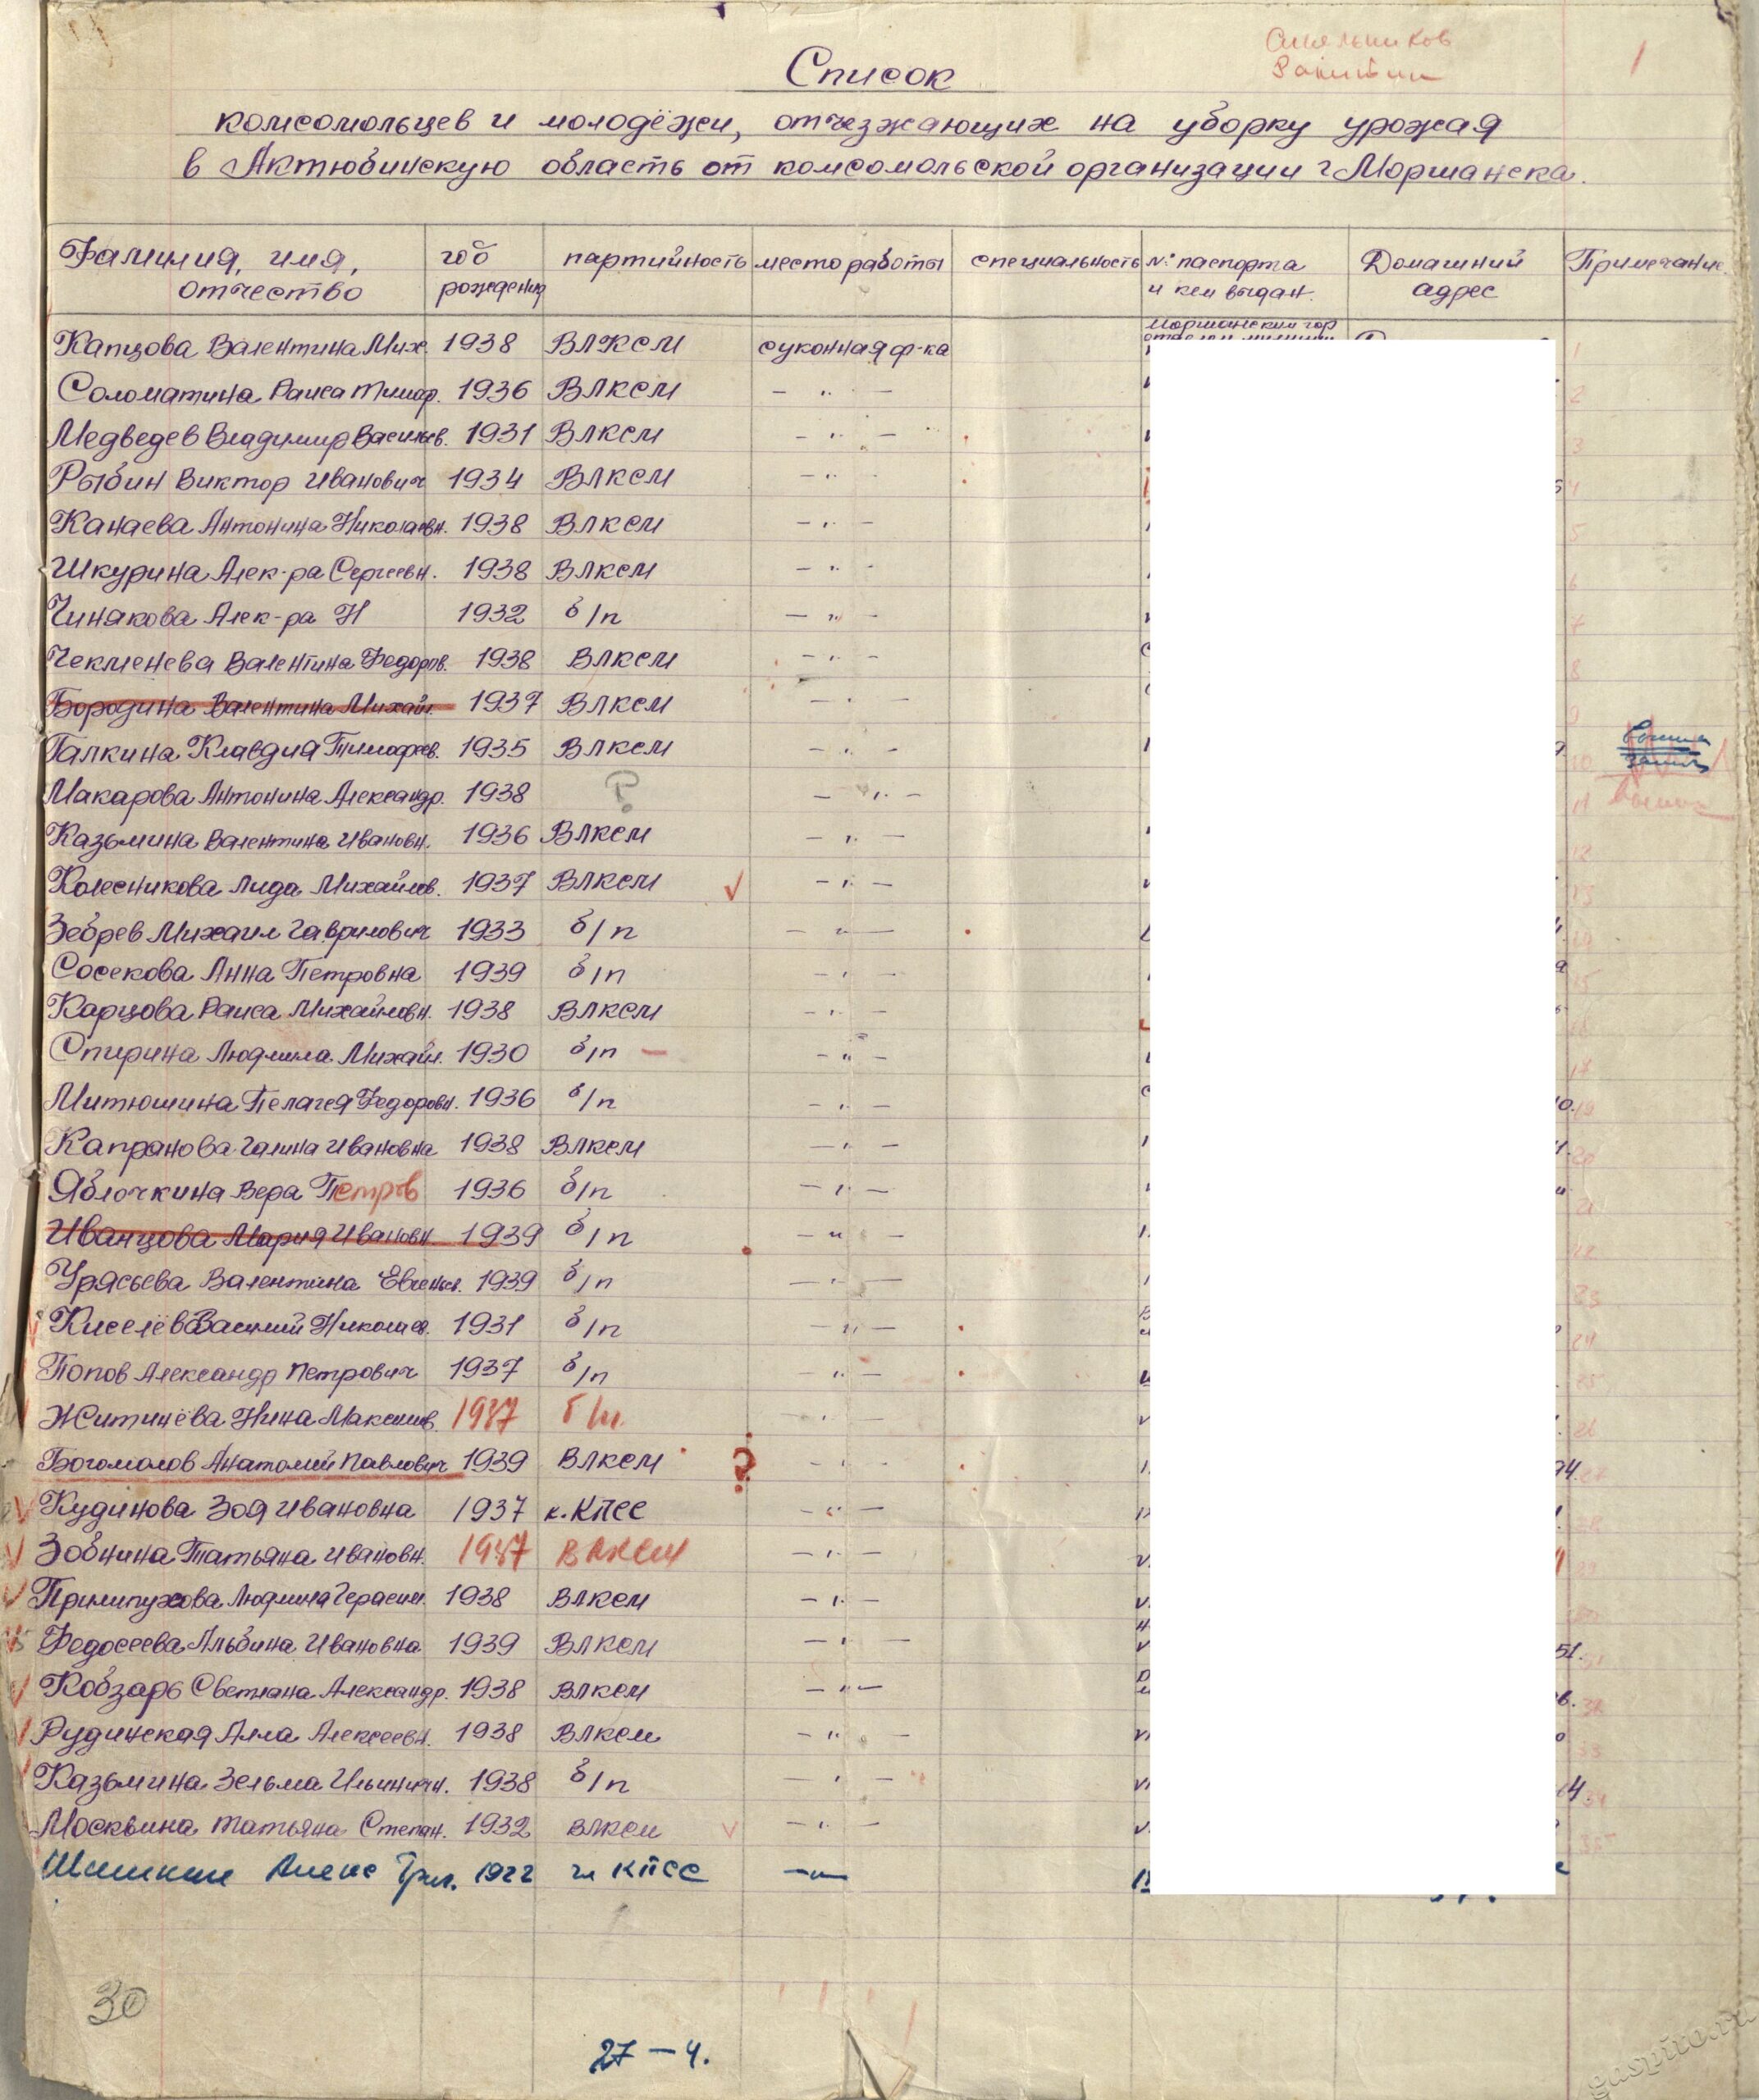 Синельников
1
Список
комсомольцев и молодёжи, отъезжающих на уборку урожая
в Актюбинскую область от комсомольской организации г Моршанска.
Фамилия, имя, отчество год рождения партийность место работы специальность № паспорта и кем выдан. Домашний адрес Примечание
Моршанским гор
Капцова Валентина Мих. 1938 ВЛКСМ суконная ф-ка 1
Соломатина Раиса Тимоф. 1936 ВЛКСМ — " — 2
Медведев Владимир Васильев. 1931 ВЛКСМ — " — 3
Рыбин Виктор Иванович 1934 ВЛКСМ — " — 4
Канаева Антонина Николаевн. 1938 ВЛКСМ — " — 5
Шкурина Алек-ра Сергеевн. 1938 ВЛКСМ — " — 6
Чинякова Алек-ра Н 1932 б/п — " — 7
Чекменева Валентина Федоров. 1938 ВЛКСМ — " — 8
Бородина Валентина Михайл. 1937 ВЛКСМ — " — 9
Галкина Клавдия Тимофеев. 1935 ВЛКСМ — " — 10
Макарова Антонина Александр. 1938 ? — " — 11
Казьмина Валентина Ивановн. 1936 ВЛКСМ — " — 12
Колесникова Лида Михайлов. 1937 ВЛКСМ — " — 13
Зебрев Михаил Гаврилович 1933 б/п — " —
Сосекова Анна Петровна 1939 б/п — " — 15
Карцова Раиса Михайловн. 1938 ВЛКСМ — " — 16
Спирина Людмила Михайл. 1930 б/п — " — 17
Митюшина Пелагея Федоровн. 1936 б/п — " —
Капранова Галина Ивановна 1938 ВЛКСМ — " — 20
Яблочкина Вера Петров 1936 б/п — " — 21
Иванцова Мария Ивановн. 1939 б/п — " — 22
Урясьева Валентина Евгеньев. 1939 б/п — " — 23
Киселёв Василий Николаев. 1931 б/п — " — 24
Попов Александр Петрович 1937 б/п — " — 25
Житинёва Нина Максимов. 1937 — " — 26
Богомолов Анатолий Павлович 1939 ВЛКСМ ? — " — 27
Кудинова Зоя Ивановна 1937 к. КПСС — " — 28
Зобнина Татьяна Ивановн. 1937 ВЛКСМ — " — 29
Прилипухова Людмила Герасим. 1938 ВЛКСМ — " — 30
Федосеева Альбина Ивановна 1939 ВЛКСМ — " — 51. 31
Кобзарь Светлана Александр. 1938 ВЛКСМ — " — в. 32
Рудинская Алла Алексеевн. 1938 ВЛКСМ — " — 33
Казьмина Зельма Ильиничн. 1938 б/п — " — 34
Москвина Татьяна Степан. 1932 ВЛКСМ — " — 35
1922 чл КПСС — " —
30
27 — 4.
gaspito.ru